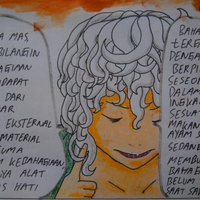 A MAS
DILANGIN
AGIAAN
DAPAT
DARI
AR
EKSTERNAL
MATERIAL
CUMA
KEBAHAGIAN
YA ALAT
S HATI
BAHA
TERGA
DENGA
BERPI
SESEO
DALAM
INGKA
SESUA
AYAM S
SEDANG
MEMBU
BAHAG
BELUM
SAAT SA